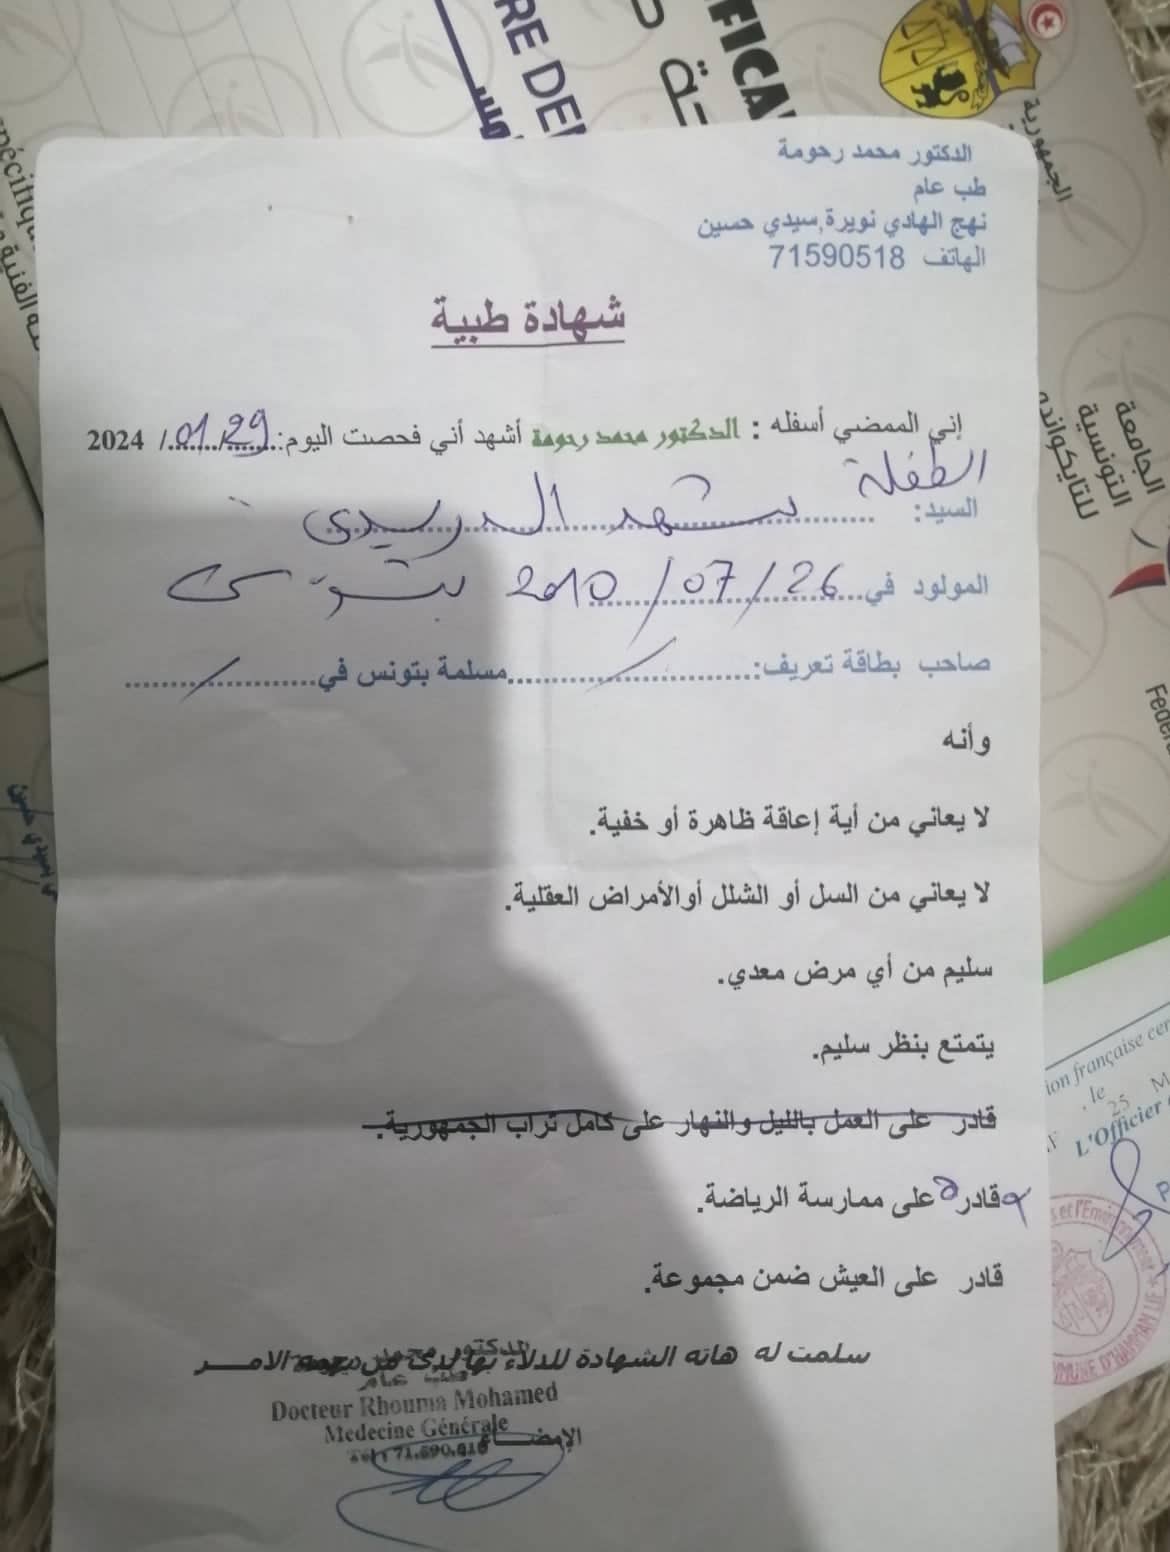 الدكتور محمد رحومة
طب عام
نهج الهادي نويرة,سيدي حسين
الهاتف 71590518
شهادة طبية
إني الممضي أسفله : الدكتور محمد رحومة أشهد أني فحصت اليوم:29/01/2024
الطفلة
السيد: شهد الدريدي
المولود في 26/07/2010 بتونس
صاحب بطاقة تعريف:....../......مسلمة بتونس في....../......
وأنه
لا يعاني من أية إعاقة ظاهرة أو خفية.
لا يعاني من السل أو الشلل أوالأمراض العقلية.
سليم من أي مرض معدي.
يتمتع بنظر سليم.
قادر على العمل بالليل والنهار على كامل تراب الجمهورية.
قادرة على ممارسة الرياضة.
قادر على العيش ضمن مجموعة.
سلمت له هاته الشهادة للدلاء بها لدى من يهمه الامر
الدكتور محمد
طب عام
Docteur Rhouma Mohamed
Medecine Générale
الإمضاء
RE DE
FICA
الجمهورية
الجامعة
التونسية
للتايكواندو
ion française cer
, le 25 M
L'Officier
s et l'Environnement
MUNE D'HAMMAM LIF